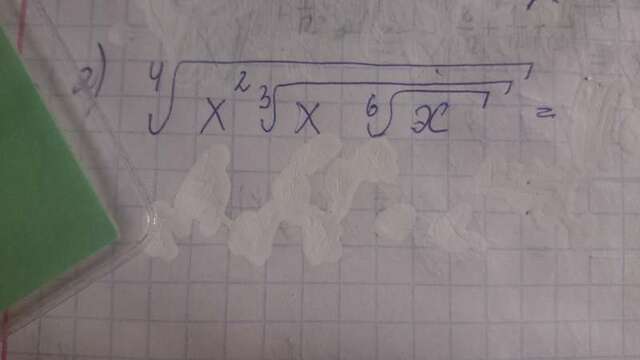 2) ⁴√(x² ³√(x ⁶√x)) =